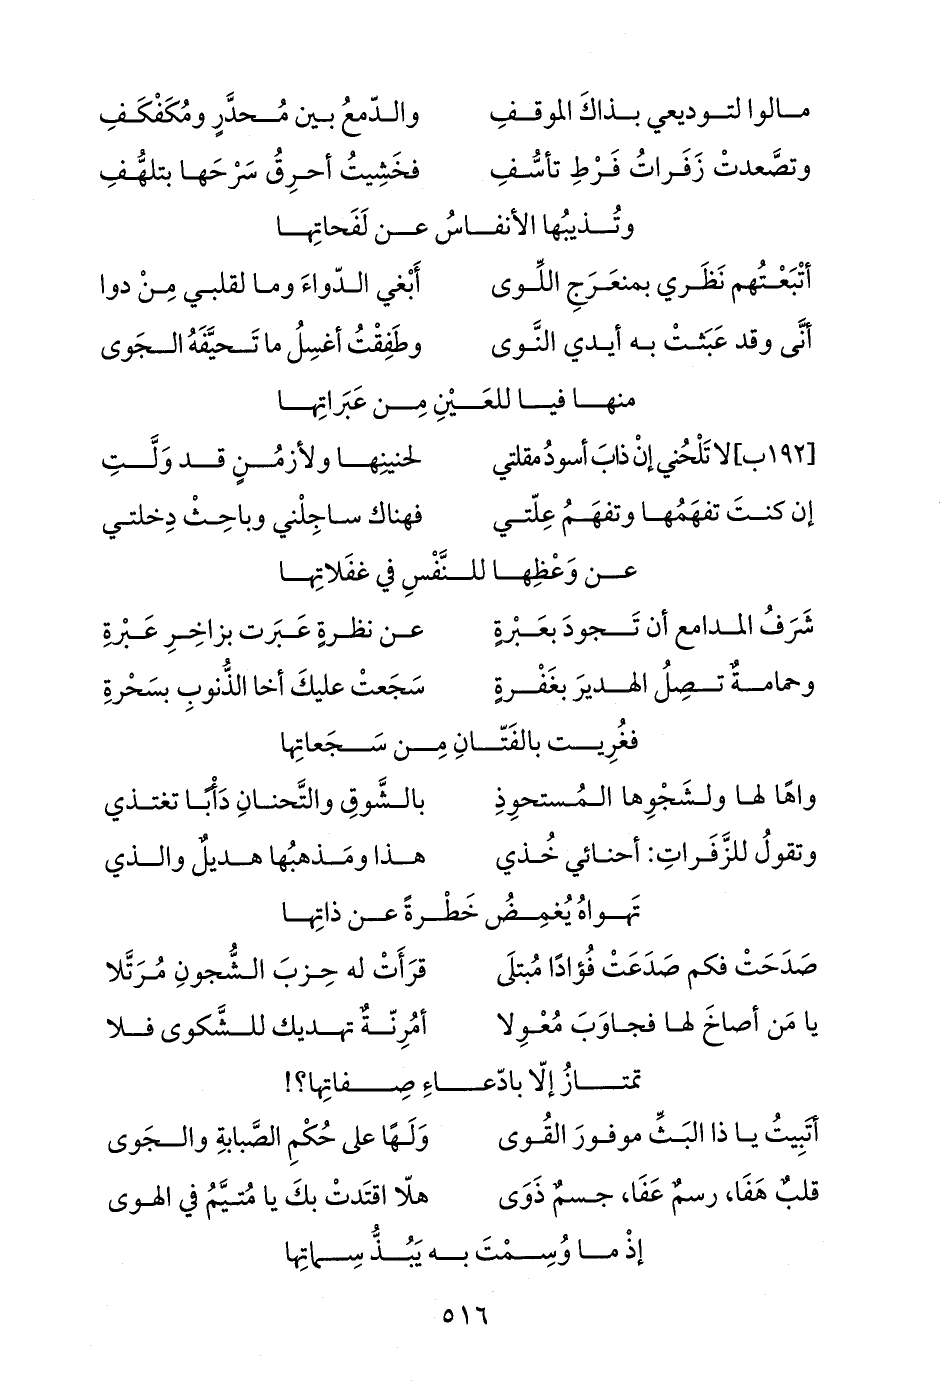 مالوا لتوديعي بذاكَ الموقفِ والدّمعُ بين مُحدَّرٍ ومُكَفْكَفِ
وتصَّعدتْ زَفَراتُ فَرْطِ تأسُّفِ فخَشِيتُ أحرِقُ سَرْحَها بتلهُّفِ
وتُذيبُها الأنفاسُ عن لَفَحاتِها
أتْبَعْتُهم نَظَري بمنعَرَجِ اللِّوى أَبْغي الدّواءَ وما لقلبي مِنْ دوا
أنَّى وقد عَبَثتْ به أيدي النَّوى وطَفِقْتُ أغسِلُ ما تَحيَّفَهُ الجَوى
منها فيا للعَيْنِ مِن عَبَراتِها
[١٩٢ب] لا تَلْحُني إنْ ذابَ أسودُ مقلتي لحنينِها ولأزمُنٍ قد وَلَّتِ
إن كنتَ تفهَمُها وتفهَمُ عِلّتي فهناك ساجِلْني وباحِثْ دِخلتي
عن وَعْظِها للنَّفْسِ في غفَلاتِها
شَرَفُ المدامعِ أن تَجودَ بعَبْرةِ عن نظرةٍ عَبَرت بزاخِرِ عَبْرةِ
وحمامةٌ تصِلُ الهديرَ بغَفْرةٍ سَجَعتْ عليكَ أخا الذُّنوبِ بسَحْرةِ
فغُرِيت بالفَتّانِ مِن سَجَعاتِها
واهًا لها ولشَجْوِها المُستحوِذِ بالشَّوقِ والتَّحنانِ دَأْبًا تغتذي
وتقولُ للزَّفَراتِ: أحنائي خُذي هذا ومَذهبُها هديلٌ والذي
تَهواهُ يُغمِضُ خَطْرةً عن ذاتِها
صَدَحَتْ فكم صَدَعَتْ فُؤادًا مُبتلَى قرَأتْ له حِزبَ الشُّجونِ مُرَتَّلا
يا مَن أصاخَ لها فجاوَبَ مُعْوِلا أمُرِنّةٌ تهديك للشَّكوى فلا
تمتازُ إلّا بادّعاءِ صِفاتِها؟!
أتَبِيتُ يا ذا البَثِّ موفورَ القُوى وَلَهًا على حُكْمِ الصَّبابةِ والجَوى
قلبٌ هَفَا، رسمٌ عَفَا، جسمٌ ذَوَى هلّا اقتَدتْ بكَ يا مُتيَّمُ في الهوى
إذْ ما وُسِمْتَ به يَبُذُّ سِماتِها
٥١٦